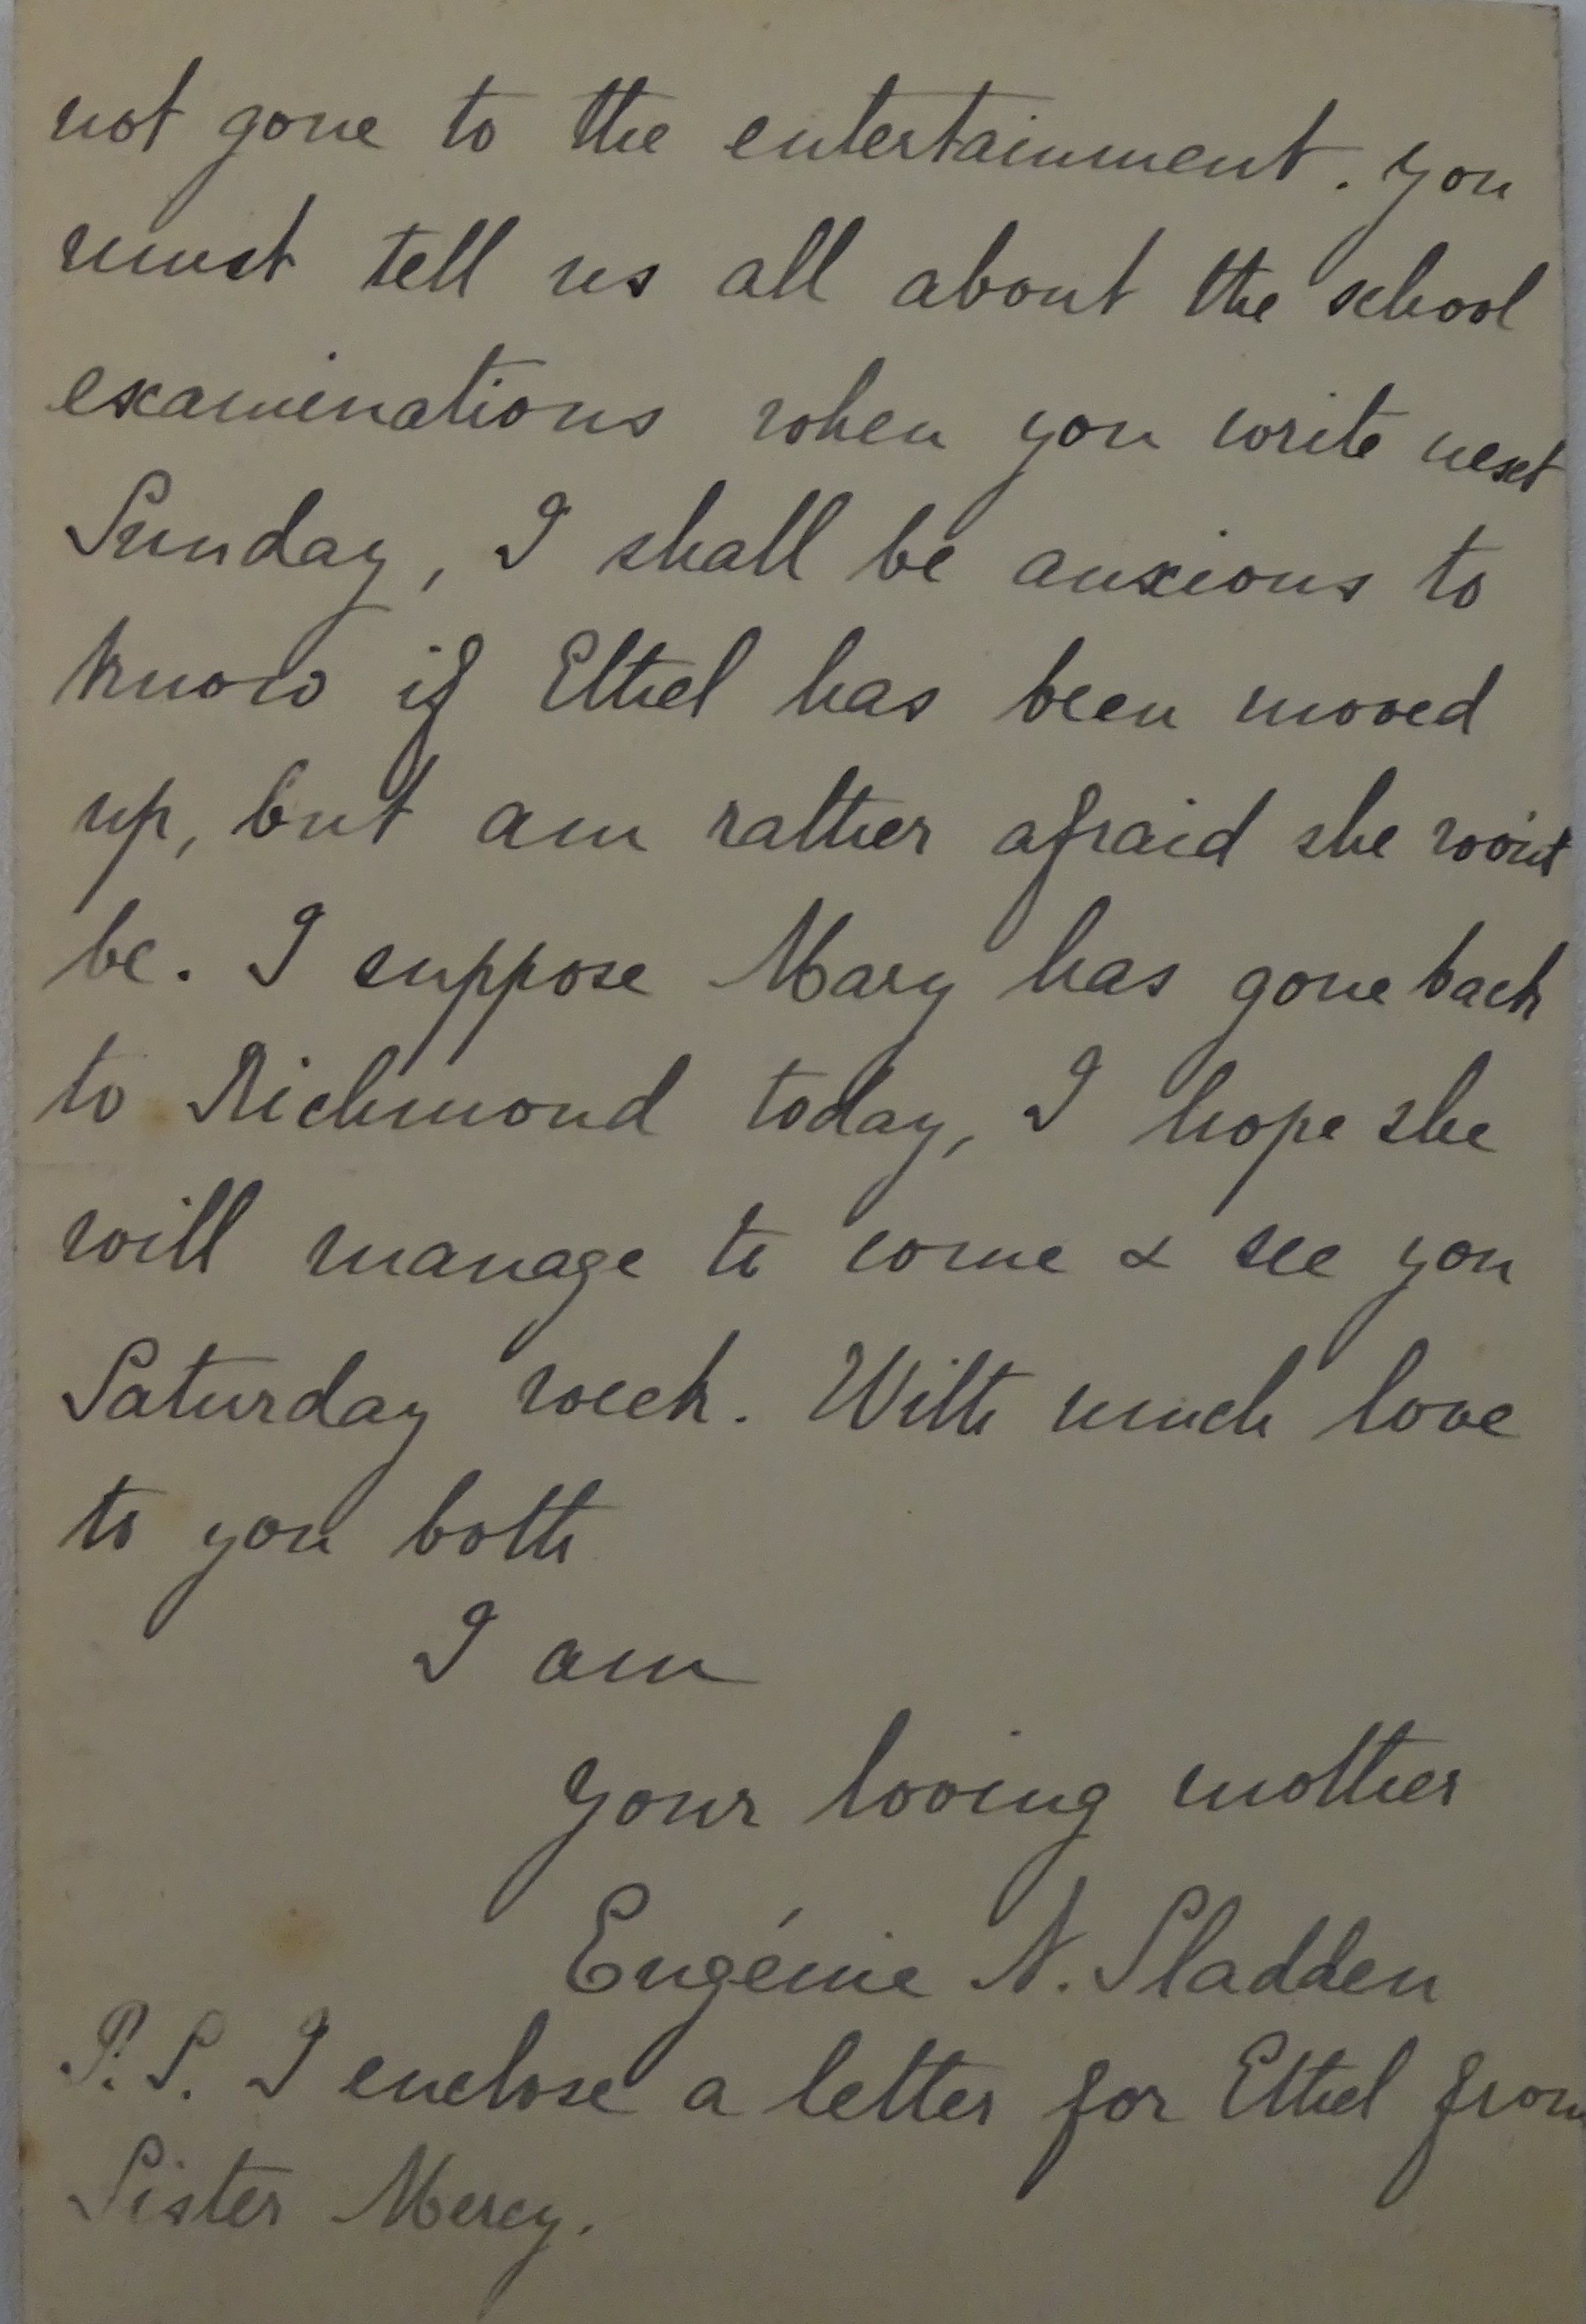 not gone to the entertainment. You
must tell us all about the school
examinations when you write next
Sunday, I shall be anxious to
know if Ethel has been moved
up, but am rather afraid she wo'nt
be. I suppose Mary has gone back
to Richmond today, I hope she
will manage to come & see you
Saturday week. With much love
to you both
I am
Your loving mother
Eugénie N. Sladden
P.S. I enclose a letter for Ethel from
Sister Mercy.